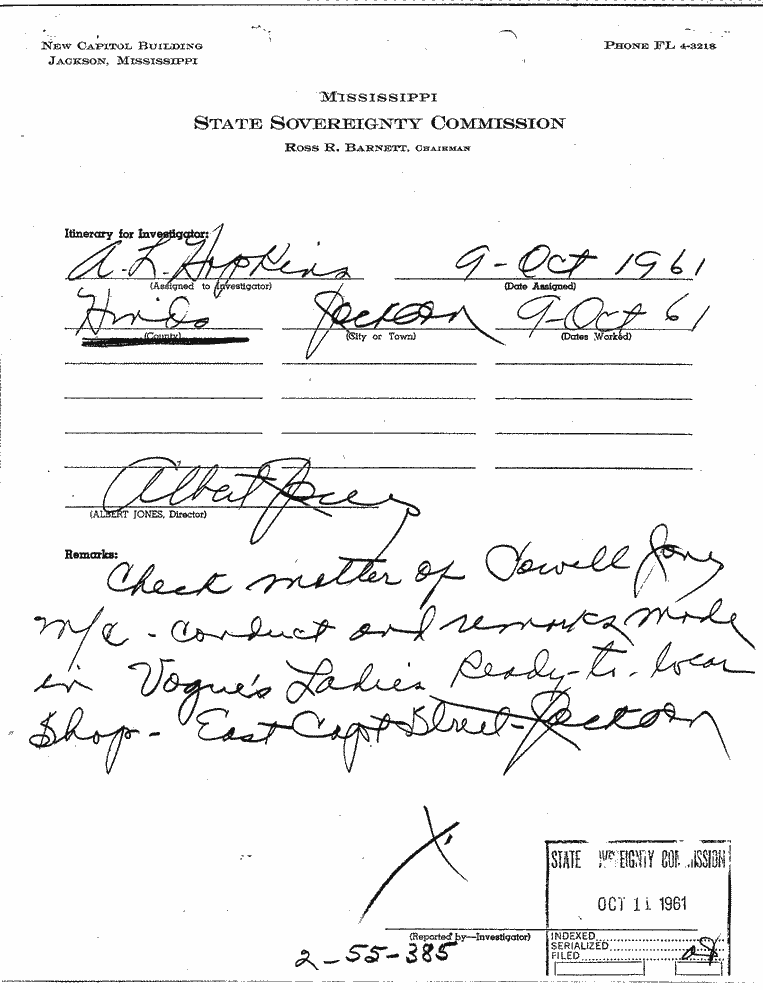 NEW CAPITOL BUILDING
JACKSON, MISSISSIPPI
PHONE FL 4-3218
MISSISSIPPI
STATE SOVEREIGNTY COMMISSION
ROSS R. BARNETT, CHAIRMAN
Itinerary for Investigator:
A. L. Hopkins 9-Oct 1961
(Assigned to Investigator) (Date Assigned)
Hinds Jackson 9-Oct 61
(County) (City or Town) (Dates Worked)
Albert Jones
(ALBERT JONES, Director)
Remarks:
Check matter of Jones
M/C - conduct and remarks made
in Vogue's Ladies Ready-to-wear
Shop - East Capt Street - Jackson
X
STATE COMMISSION
OCT 11 1961
(Reported by—Investigator)
INDEXED
SERIALIZED
FILED
2-55-385